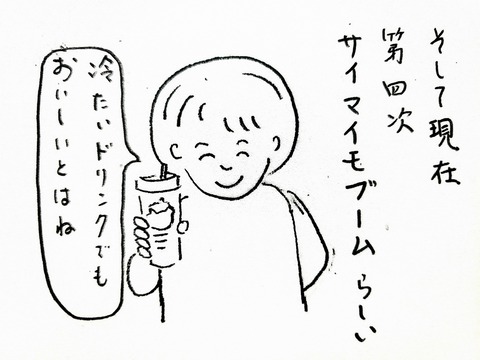 そして現在
第四次
サイマイモブームらしい
冷たいドリンクでも
おいしいとはね